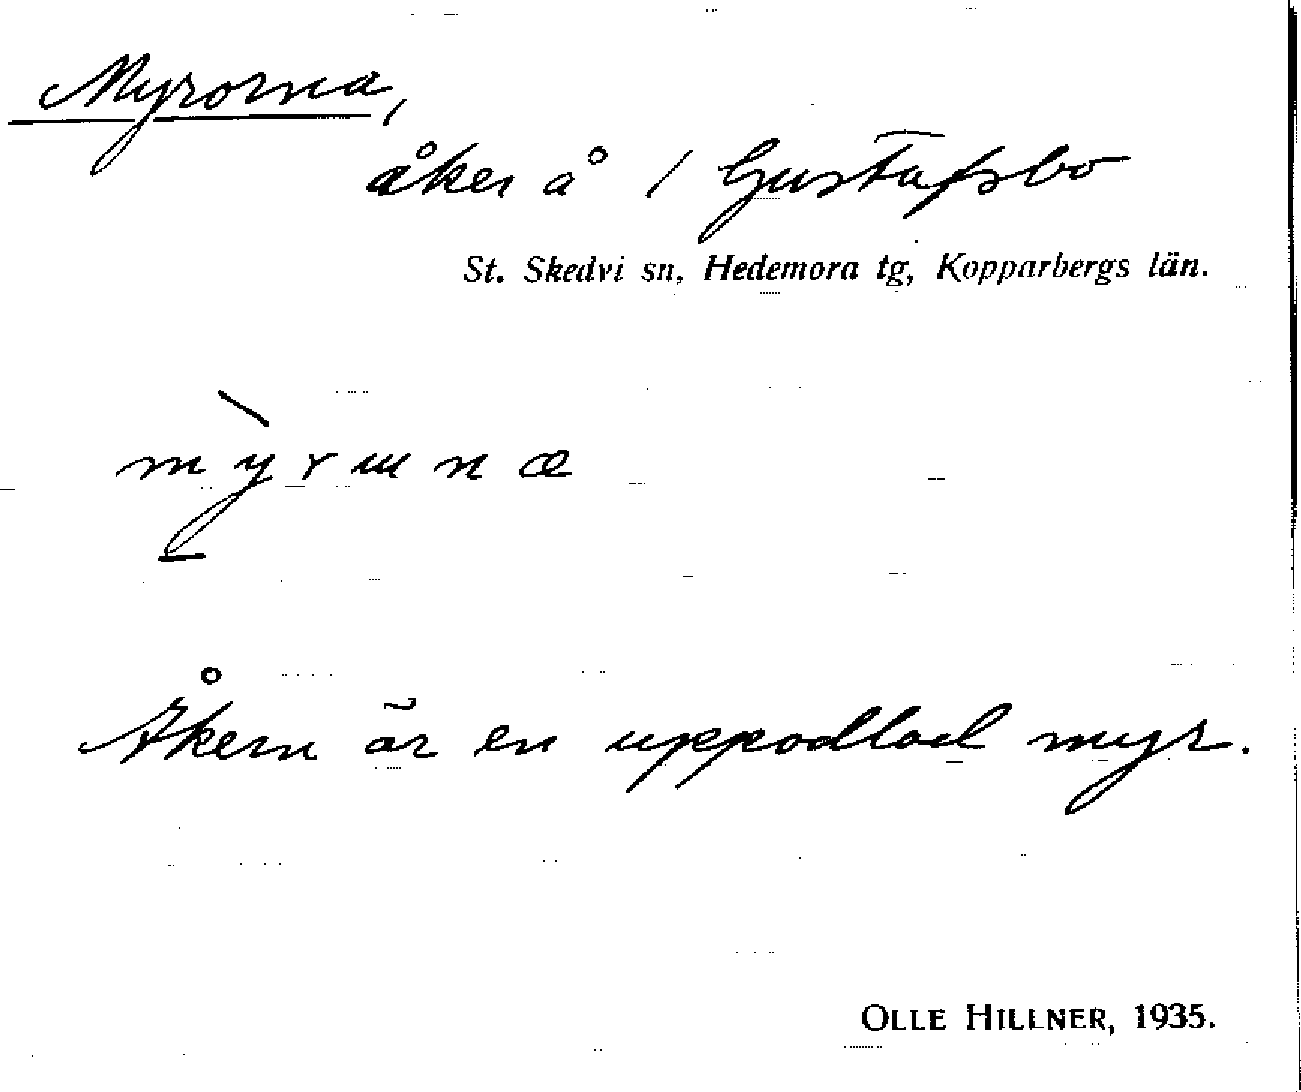 Myrorna,
åker å / Gustafsbo
St. Skedvi sn, Hedemora tg, Kopparbergs län.
m ỳ̠ r ɯ n æ
Åkern är en uppodlad myr.
OLLE HILLNER, 1935.